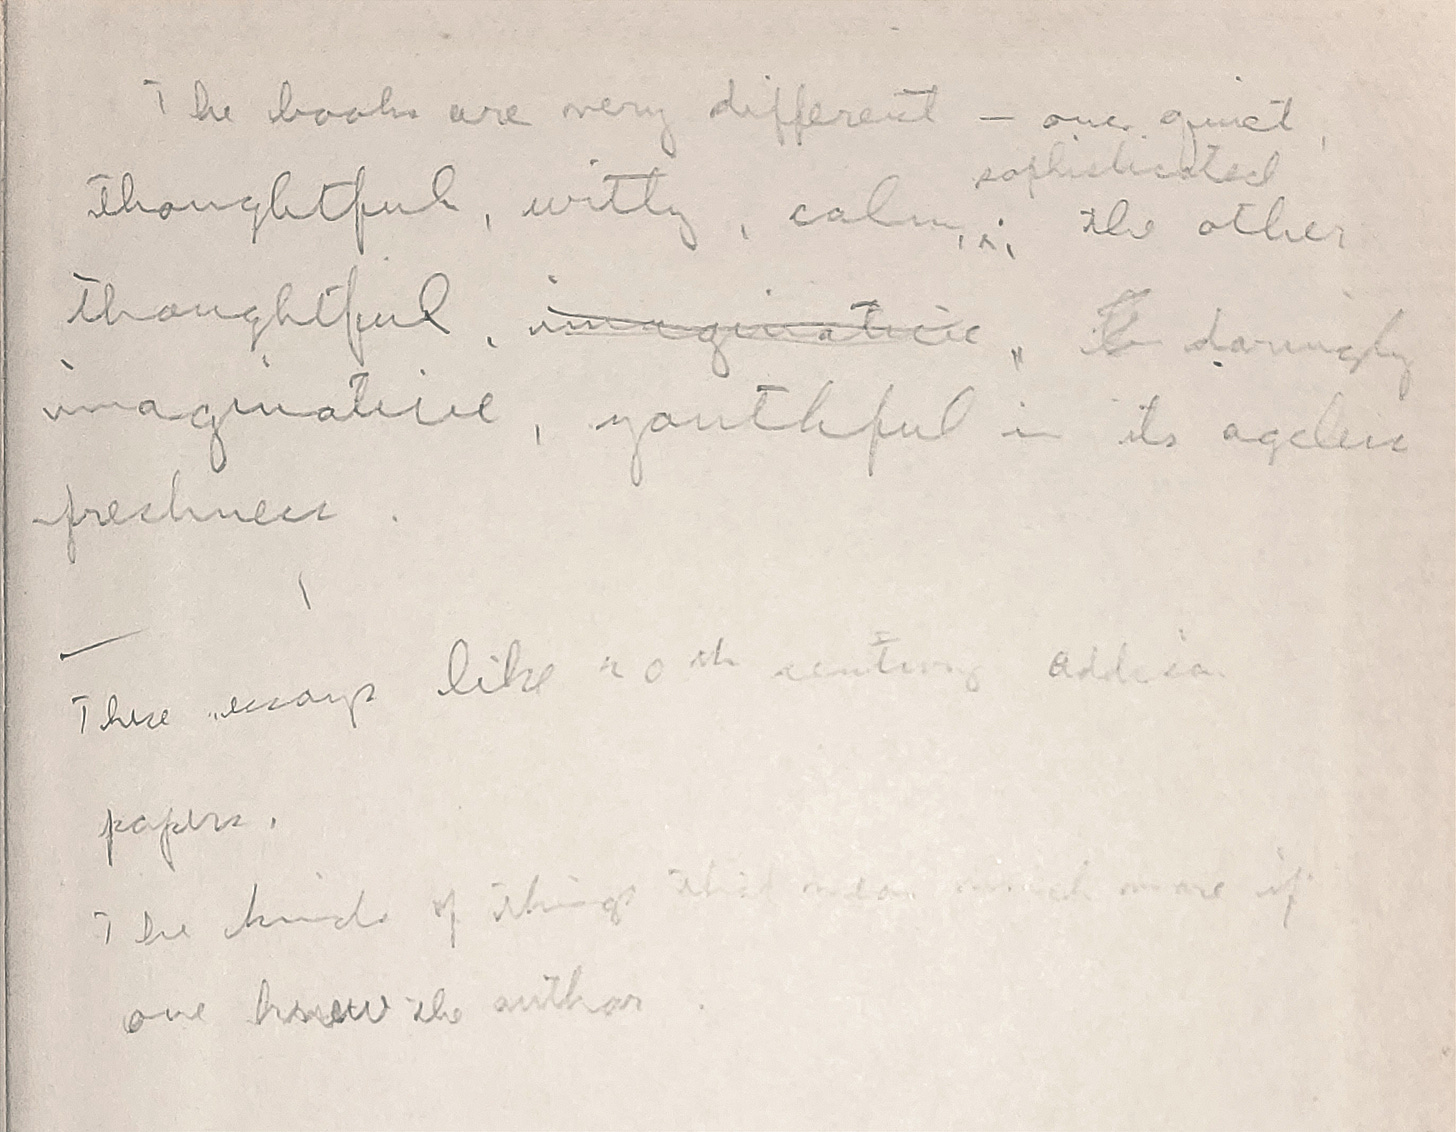 The books are very different — one quiet,
sophisticated
thoughtful, witty, calm, ^; the other
thoughtful, imaginative, daringly
imaginative, youthful in its ageless
freshness.
These essays like 20th century Addison
papers.
The kinds of things that mean much more if
one knew the author.